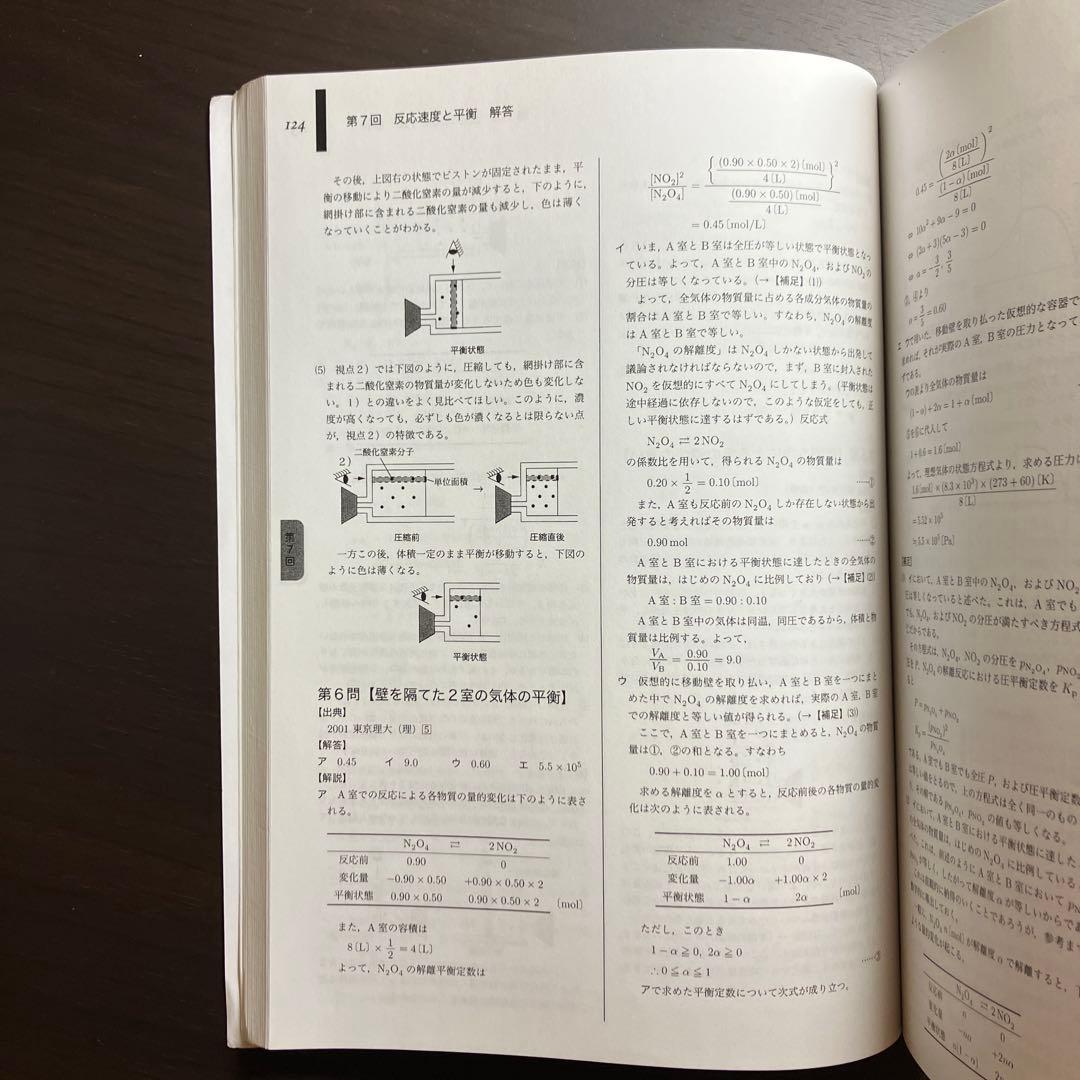 124
第7回 反応速度と平衡 解答
その後，上図右の状態でピストンが固定されたまま，平
衡の移動により二酸化窒素の量が減少すると，下のように，
網掛け部に含まれる二酸化窒素の量も減少し，色は薄く
なっていくことがわかる。
平衡状態
(5) 視点2）では下図のように，圧縮しても，網掛け部に含
まれる二酸化窒素の物質量が変化しないため色も変化しな
い。1）との違いをよく見比べてほしい。このように，濃
度が高くなっても，必ずしも色が濃くなるとは限らない点
が，視点2）の特徴である。
二酸化窒素分子
2）
単位面積
圧縮前
圧縮直後
一方この後，体積一定のまま平衡が移動すると，下図の
ように色は薄くなる。
平衡状態
第7回
第6問【壁を隔てた2室の気体の平衡】
【出典】
2001 東京理大（理）5
【解答】
ア 0.45 イ 9.0 ウ 0.60 エ 5.5 × 10⁵
【解説】
ア A室での反応による各物質の量的変化は下のように表さ
れる。
N₂O₄ ⇄ 2NO₂
反応前 0.90 0
変化量 −0.90 × 0.50 +0.90 × 0.50 × 2
平衡状態 0.90 × 0.50 0.90 × 0.50 × 2 (mol)
また，A室の容積は
8〔L〕× 1/2 = 4〔L〕
よって，N₂O₄ の解離平衡定数は
[NO₂]²/[N₂O₄] = {(0.90 × 0.50 × 2)〔mol〕/4〔L〕}² / (0.90 × 0.50)〔mol〕/4〔L〕
= 0.45〔mol/L〕
イ いま，A室とB室は全圧が等しい状態で平衡状態となっ
ている。よって，A室とB室中のN₂O₄，およびNO₂の
分圧は等しくなっている。(→【補足】(1))
よって，全気体の物質量に占める各成分気体の物質量の
割合はA室とB室で等しい。すなわち，N₂O₄の解離度
はA室とB室で等しい。
「N₂O₄の解離度」はN₂O₄しかない状態から出発して
議論されなければならないので，まず，B室に封入された
NO₂を仮想的にすべてN₂O₄にしてしまう。(平衡状態は
途中経過に依存しないので，このような仮定をしても，正
しい平衡状態に達するはずである。）反応式
N₂O₄ ⇄ 2NO₂
の係数比を用いて，得られるN₂O₄の物質量は
0.20 × 1/2 = 0.10〔mol〕 ……①
また，A室も反応前のN₂O₄しか存在しない状態から出
発すると考えればその物質量は
0.90 mol ……②
A室とB室における平衡状態に達したときの全気体の
物質量は，はじめのN₂O₄に比例しており(→【補足】(2))
A室：B室 = 0.90：0.10
A室とB室中の気体は同温，同圧であるから，体積と物
質量は比例する。よって，
V_A/V_B = 0.90/0.10 = 9.0
ウ 仮想的に移動壁を取り払い，A室とB室を一つにまと
めた中でN₂O₄の解離度を求めれば，実際のA室，B室
での解離度と等しい値が得られる。(→【補足】(3))
ここで，A室とB室を一つにまとめると，N₂O₄の物質
量は①，②の和となる。すなわち
0.90 + 0.10 = 1.00〔mol〕
求める解離度をαとすると，反応前後の各物質の量的変
化は次のように表される。
N₂O₄ ⇄ 2NO₂
反応前 1.00 0
変化量 −1.00α +1.00α × 2
平衡状態 1 − α 2α (mol)
ただし，このとき
1 − α ≧ 0, 2α ≧ 0
∴ 0 ≦ α ≦ 1 ……③
アで求めた平衡定数について次式が成り立つ。
0.45 = (2α〔mol〕/8〔L〕)² / (1−α)〔mol〕/8〔L〕
⇔ 10α² + 9α − 9 = 0
⇔ (2α + 3)(5α − 3) = 0
⇔ α = −3/2, 3/5
α = 3/5 = 0.60
エ ウで用いた，移動壁を取り払った仮想的な容器で
求めれば，それが実際のA室，B室の圧力となって
ずである。
ウの表より全気体の物質量は
(1−α) + 2α = 1 + α〔mol〕
1 + 0.6 = 1.6〔mol〕
よって，理想気体の状態方程式より，求める圧力は
1.6〔mol〕× (8.3 × 10³) × (273 + 60)〔K〕/8〔L〕
= 5.52 × 10⁵
≒ 5.5 × 10⁵〔Pa〕
【補足】
イにおいて，A室とB室中のN₂O₄，およびNO₂
圧は等しくなっていると述べた。これは，A室でも
でも，N₂O₄およびNO₂の分圧が満たすべき方程式
だからである。